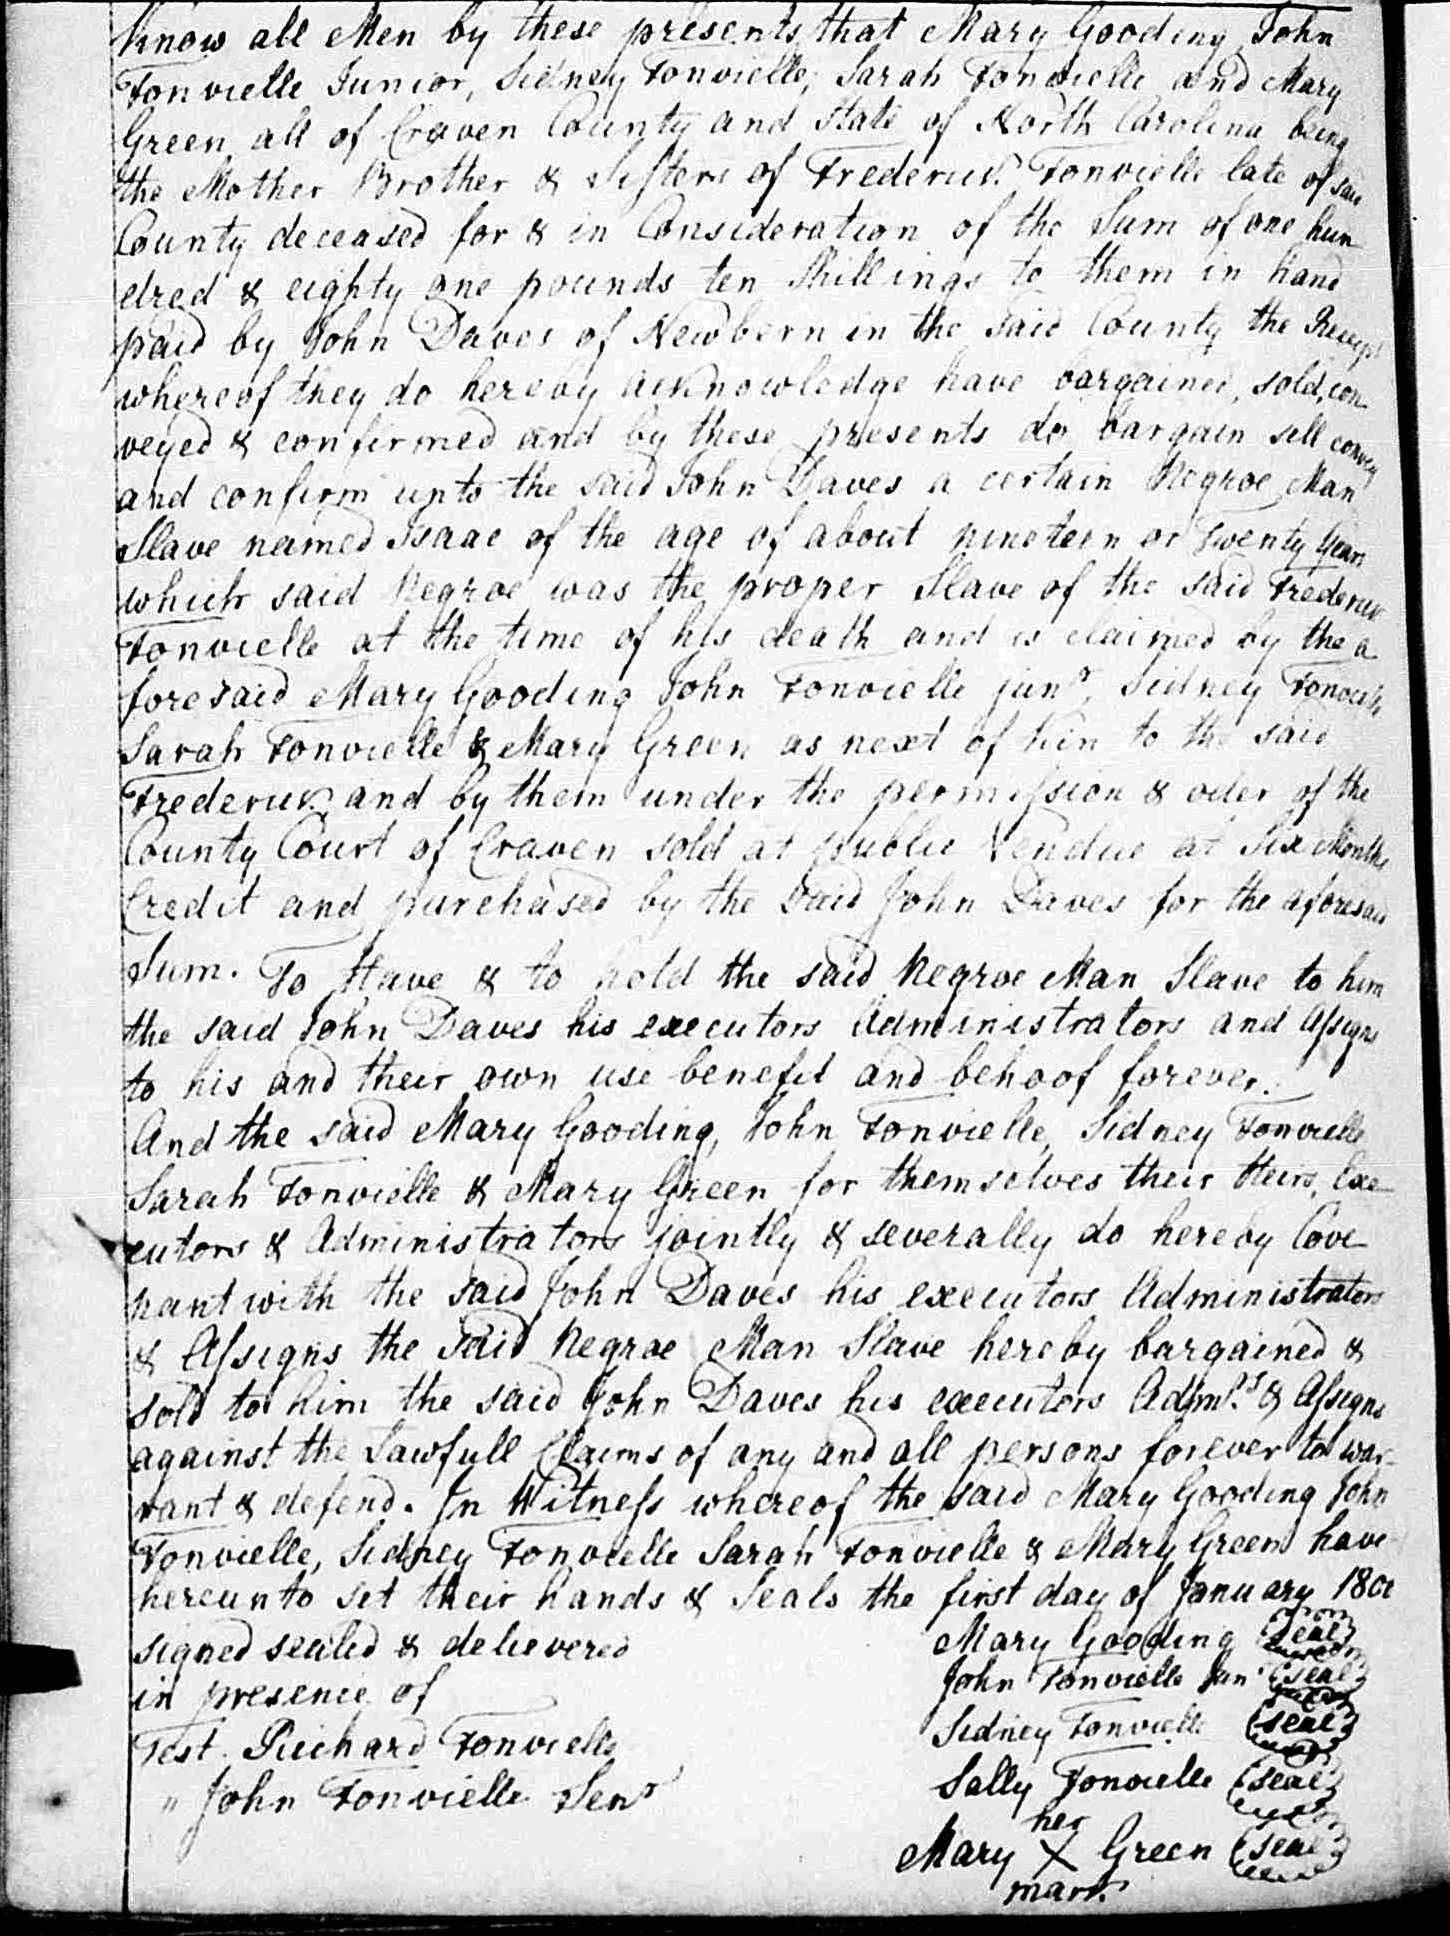 Know all Men by these presents, that Mary Gooding, John
Fonvielle Junior, Sidney Fonvielle, Sarah Fonvielle and Mary
Green all of Craven County and State of North Carolina being
the Mother Brother & Sisters of Frederick Fonvielle late of said
County deceased for & in Consideration of the Sum of one hun
dred & eighty one pounds ten Shillings to them in hand
paid by John Daves of Newbern in the said County the Receipt
whereof they do hereby acknowledge have bargained, sold, con
veyed & confirmed and by these presents do bargain sell convey
and confirm unto the said John Daves a certain Negroe Man
Slave named Isaac of the age of about nineteen or Twenty Years
which said Negroe was the proper Slave of the said Frederick
Fonvielle at the time of his death and is claimed by the a
foresaid Mary Gooding John Fonvielle junr. Sidney Fonvielle
Sarah Fonvielle & Mary Green as next of kin to the said
Frederick and by them under the permission & oder of the
County Court of Craven sold at publie Vendue at Six Months
Credit and purchased by the said John Daves for the aforesaid
Sum. To Have & to hold the said Negroe Man Slave to him
the said John Daves his executors Administrators and Assigns
to his and their own use benefit and behoof forever.
And the said Mary Gooding, John Fonvielle, Sidney Fonvielle
Sarah Fonvielle & Mary Green for themselves their Heirs, Exe
cutors & Administrators jointly & severally do hereby Cove
nant with the said John Daves his executors Administrators
& Assigns the said Negroe Man Slave hereby bargained &
sold to him the said John Daves his executors Admrs. & Assigns
against the Lawfull Claims of any and all persons forever to war-
rant & defend. In Witness whereof the said Mary Gooding John
Fonvielle, Sidney Fonvielle Sarah Fonvielle & Mary Green have
hereunto set their hands & Seals the first day of January
signed sealed & delievered Mary Gooding (seal)
in presence of John Fonvielle Jun (seal)
Test. Richard Fonvielle Sidney Fonvielle (seal)
" John Fonvielle Senr Sally Fonvielle (seal)
her
Mary X Green (seal)
mark